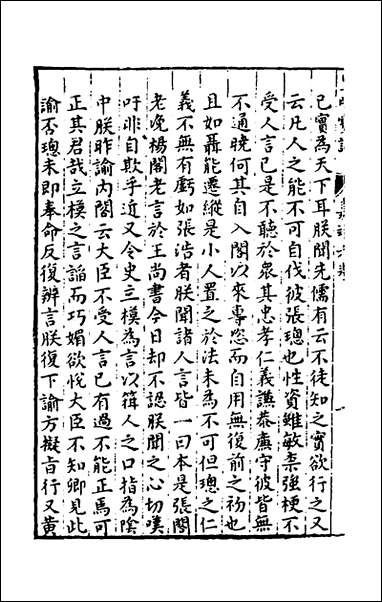 已實為天下耳朕聞先儒有云不徒知之實欲行之又
云凡人之能不可自伐彼張璁也性資雖敏柰強梗不
受人言已是不聽於衆其忠孝仁義謙恭廉守彼皆無
不通曉何其自入閣以來專恣而自用無復前之初也
且如聶能遷縱是小人置之於法未為不可但璁之仁
義不無有虧如張浩者朕聞諸人言皆一曰本是張閣
老晚楊閣老言於王尚書今日却不認朕聞之心切嘆
吁非自欺乎近又令史立模為言以箝人之口指為陰
中朕昨諭內閣云大臣不受人言已有過不能正焉可
正其君哉立模之言謟而巧媚欲悅大臣不知卿見此
諭否璁未即奉命反復辨言朕復下諭方擬旨行又黃